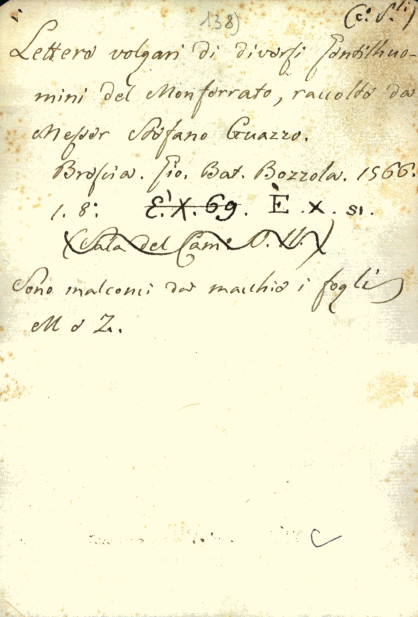 138)
(c. S.ti)
Lettere volgari di diversi Gentilhuo-
mini del Monferrato, raccolte da
Messer Stefano Guazzo.
Brescia. Gio. Bat. Bozzola. 1566.
1. 8.º È. X. 69. È. x. 51.
(Sala del Cam
Sono malconci da macchie i fogli
M e Z.